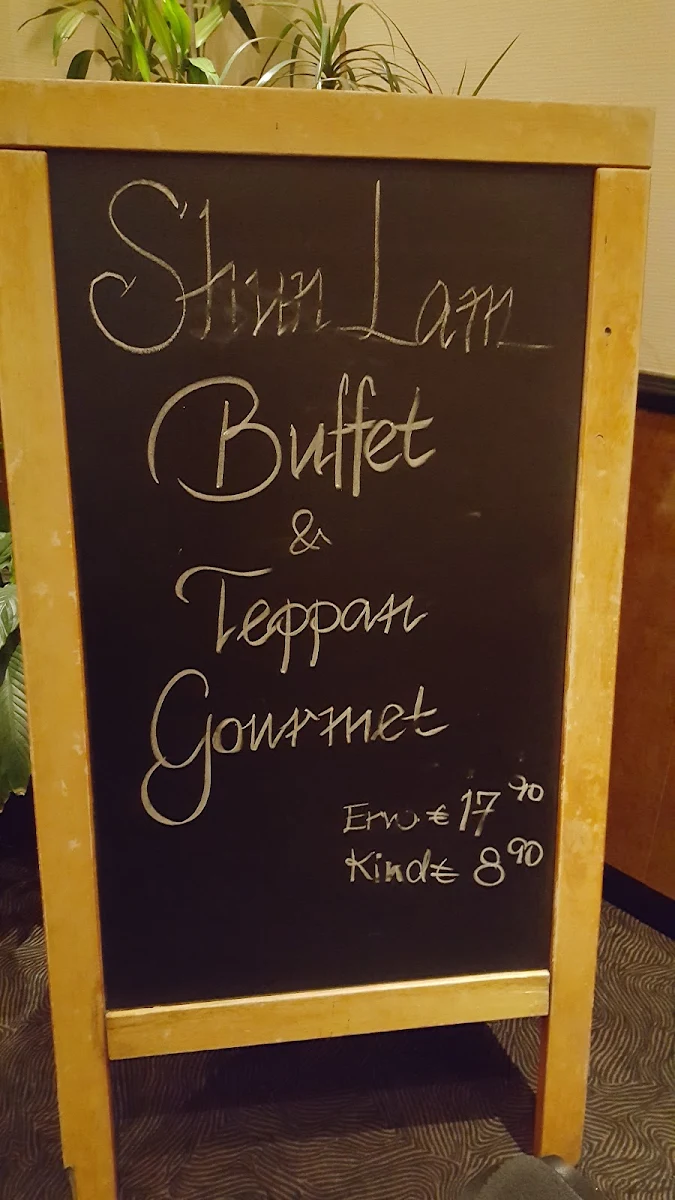 Shun Lam
Buffet
&
Teppan
Gourmet
Erw € 17 90
Kind € 8 90